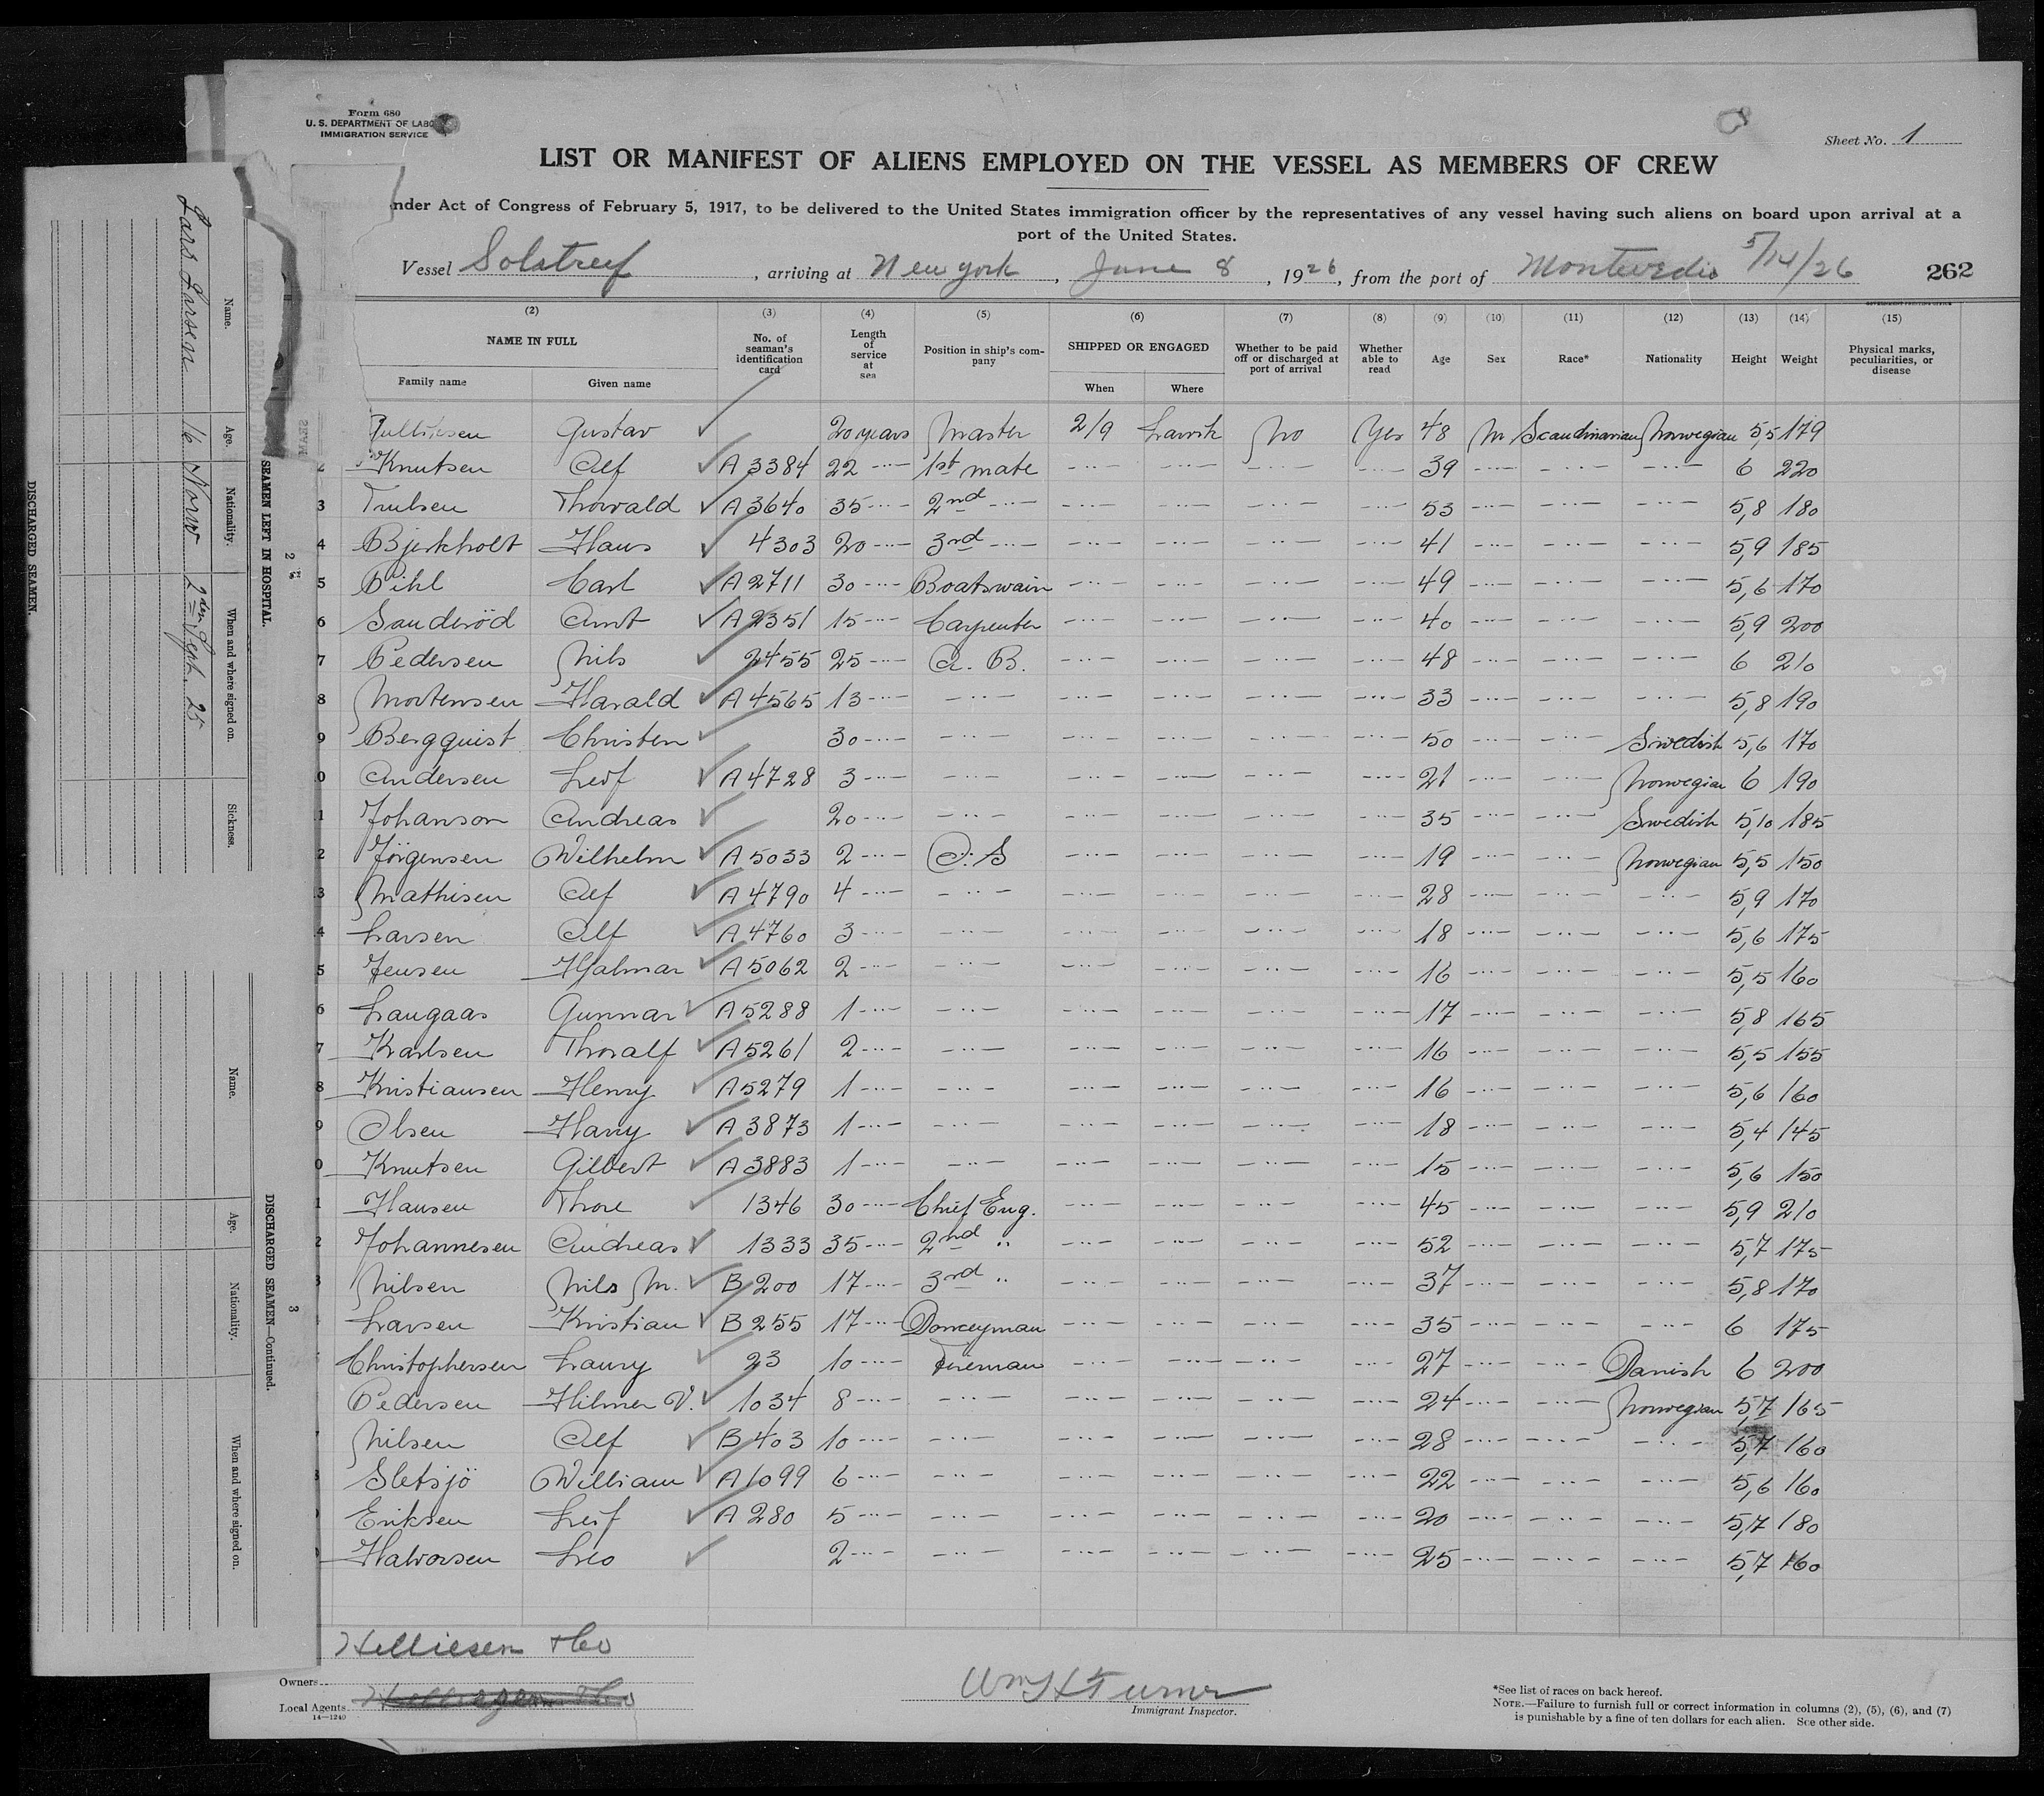 Form 680
U. S. DEPARTMENT OF LABO
IMMIGRATION SERVICE
Sheet No. 1
LIST OR MANIFEST OF ALIENS EMPLOYED ON THE VESSEL AS MEMBERS OF CREW
nder Act of Congress of February 5, 1917, to be delivered to the United States immigration officer by the representatives of any vessel having such aliens on board upon arrival at a
port of the United States.
Vessel Solstreif, arriving at New york, June 8, 1926, from the port of Montevedio 5/14/26 262
(2) (3) (4) (5) (6) (7) (8) (9) (10) (11) (12) (13) (14) (15)
NAME IN FULL No. of seaman's identification card Length of service at sea Position in ship's company SHIPPED OR ENGAGED Whether to be paid off or discharged at port of arrival Whether able to read Age Sex Race* Nationality Height Weight Physical marks, peculiarities, or disease
Family name Given name When Where
Gustav 20 years Master 2/9 Larvik No Yes 48 M Scandinavian Norwegian 5,5 179
2 Knutsen Alf A 3384 22 -··- 1st mate -··- -··- -··- -··- 39 -··- -··- -··- 6 220
3 Trulsen Thorvald A 3640 35 -··- 2nd -··- -··- -··- -··- -··- 53 -··- -··- -··- 5,8 180
4 Bjerkholt Hans 4303 20 -··- 3rd -··- -··- -··- -··- -··- 41 -··- -··- -··- 5,9 185
5 Pihl Carl A 2711 30 -··- Boatswain -··- -··- -··- -··- 49 -··- -··- -··- 5,6 170
6 Sanderöd Arnt A 2351 15 -··- Carpenter -··- -··- -··- -··- 40 -··- -··- -··- 5,9 200
7 Pedersen Nils 2455 25 -··- A. B. -··- -··- -··- -··- 48 -··- -··- -··- 6 210
8 Mortensen Harald A 4565 13 -··- -··- -··- -··- -··- -··- 33 -··- -··- -··- 5,8 190
9 Bergquist Christen 30 -··- -··- -··- -··- -··- -··- 50 -··- -··- Swedish 5,6 170
0 Andersen Leif A 4728 3 -··- -··- -··- -··- -··- -··- 21 -··- -··- Norwegian 6 190
1 Johanson Andreas 20 -··- -··- -··- -··- -··- -··- 35 -··- -··- Swedish 5,10 185
2 Jörgensen Wilhelm A 5033 2 -··- O. S -··- -··- -··- -··- 19 -··- -··- Norwegian 5,5 150
3 Mathisen Alf A 4790 4 -··- -··- -··- -··- -··- -··- 28 -··- -··- -··- 5,9 170
4 Larsen Alf A 4760 3 -··- -··- -··- -··- -··- -··- 18 -··- -··- -··- 5,6 175
5 Jensen Hjalmar A 5062 2 -··- -··- -··- -··- -··- -··- 16 -··- -··- -··- 5,5 160
6 Langaas Gunnar A 5288 1 -··- -··- -··- -··- -··- -··- 17 -··- -··- -··- 5,8 165
7 Karlsen Thoralf A 5261 2 -··- -··- -··- -··- -··- -··- 16 -··- -··- -··- 5,5 155
8 Kristiansen Henry A 5279 1 -··- -··- -··- -··- -··- -··- 16 -··- -··- -··- 5,6 160
9 Olsen Harry A 3873 1 -··- -··- -··- -··- -··- -··- 18 -··- -··- -··- 5,4 145
0 Knutsen Gilbert A 3883 1 -··- -··- -··- -··- -··- -··- 15 -··- -··- -··- 5,6 150
1 Hansen Thore 1346 30 -··- Chief Eng. -··- -··- -··- -··- 45 -··- -··- -··- 5,9 210
2 Johannesen Andreas 1333 35 -··- 2nd ·· -··- -··- -··- -··- 52 -··- -··- -··- 5,7 175
3 Nilsen Nils M. B 200 17 -··- 3rd ·· -··- -··- -··- -··- 37 -··- -··- -··- 5,8 170
Larsen Kristian B 255 17 -··- Donceyman -··- -··- -··- -··- 35 -··- -··- -··- 6 175
Christophersen Laury 23 10 -··- Fireman -··- -··- -··- -··- 27 -··- -··- Danish 6 200
Pedersen Hilmer V. 1034 8 -··- -··- -··- -··- -··- -··- 24 -··- -··- Norwegian 5,7 165
Nilsen Alf B 403 10 -··- -··- -··- -··- -··- -··- 28 -··- -··- -··- 5,7 160
Sletsjö William A 1099 6 -··- -··- -··- -··- -··- -··- 22 -··- -··- -··- 5,6 160
Eriksen Leif A 280 5 -··- -··- -··- -··- -··- -··- 20 -··- -··- -··- 5,7 180
Halvorsen Leo 2 -··- -··- -··- -··- -··- -··- 25 -··- -··- -··- 5,7 160
Helliesen & Co
Owners
Local Agents
14—1240
Wm H Turner
Immigrant Inspector.
*See list of races on back hereof.
NOTE.—Failure to furnish full or correct information in columns (2), (5), (6), and (7)
is punishable by a fine of ten dollars for each alien. See other side.
2
SEAMEN LEFT IN HOSPITAL.
Name. Age. Nationality. When and where signed on. Sickness.
Lars Larsen 16 Norw 2den Sept. 25
DISCHARGED SEAMEN.
3
DISCHARGED SEAMEN—Continued.
Name. Age. Nationality. When and where signed on.